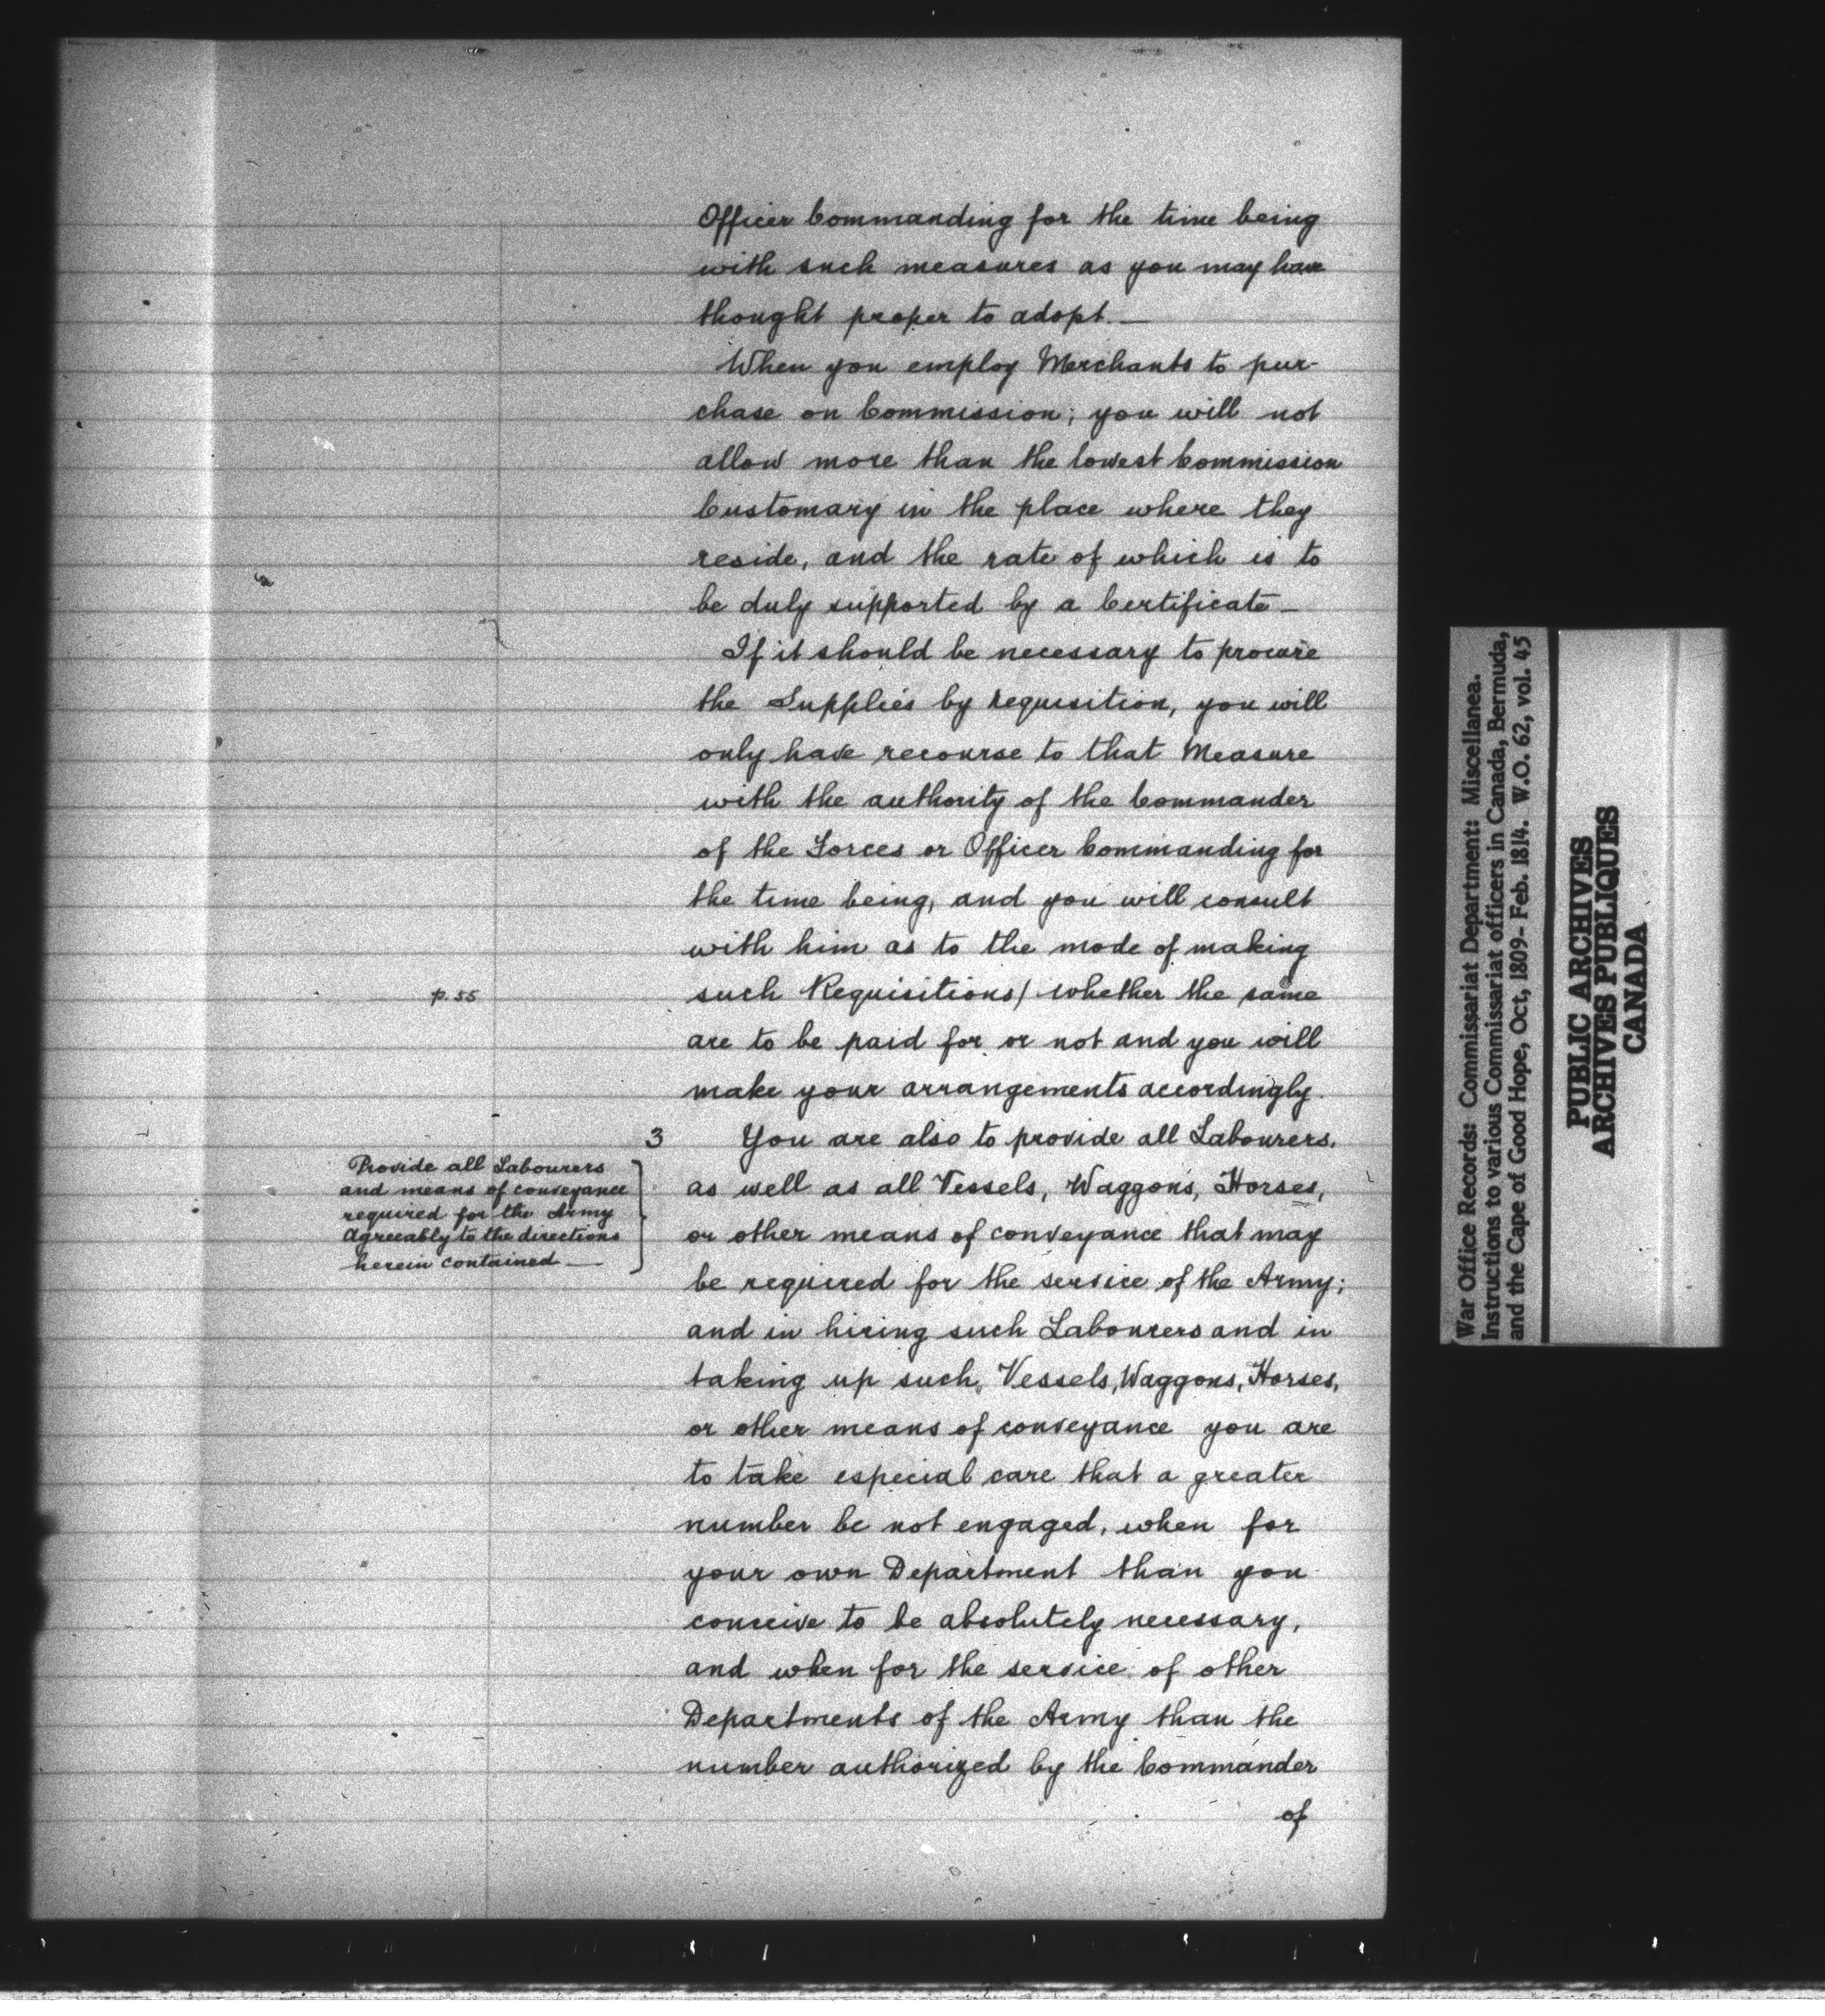 Officer Commanding for the time being
with such measures as you may have
thought proper to adopt.—
When you employ Merchants to pur-
chase on Commission; you will not
allow more than the lowest Commission
Customary in the place where they
reside, and the rate of which is to
be duly supported by a Certificate—
If it should be necessary to procure
the Supplies by requisition, you will
only have recourse to that Measure
with the authority of the Commander
of the Forces or Officer Commanding for
the time being, and you will consult
with him as to the mode of making
p. 55
such Requisitions/ whether the same
are to be paid for or not and you will
make your arrangements accordingly.
3 You are also to provide all Labourers,
Provide all Labourers
and means of conveyance
required for the Army
Agreeably to the directions
herein contained—
as well as all Vessels, Waggons, Horses,
or other means of conveyance that may
be required for the service of the Army;
and in hiring such Labourers and in
taking up such, Vessels, Waggons, Horses,
or other means of conveyance you are
to take especial care that a greater
number be not engaged, when for
your own Department than you
conceive to be absolutely necessary,
and when for the service of other
Departments of the Army than the
number authorized by the Commander
of
War Office Records: Commissariat Department: Miscellanea.
Instructions to various Commissariat officers in Canada, Bermuda,
and the Cape of Good Hope, Oct, 1809- Feb. 1814. W.O. 62, vol. 45
PUBLIC ARCHIVES
ARCHIVES PUBLIQUES
CANADA